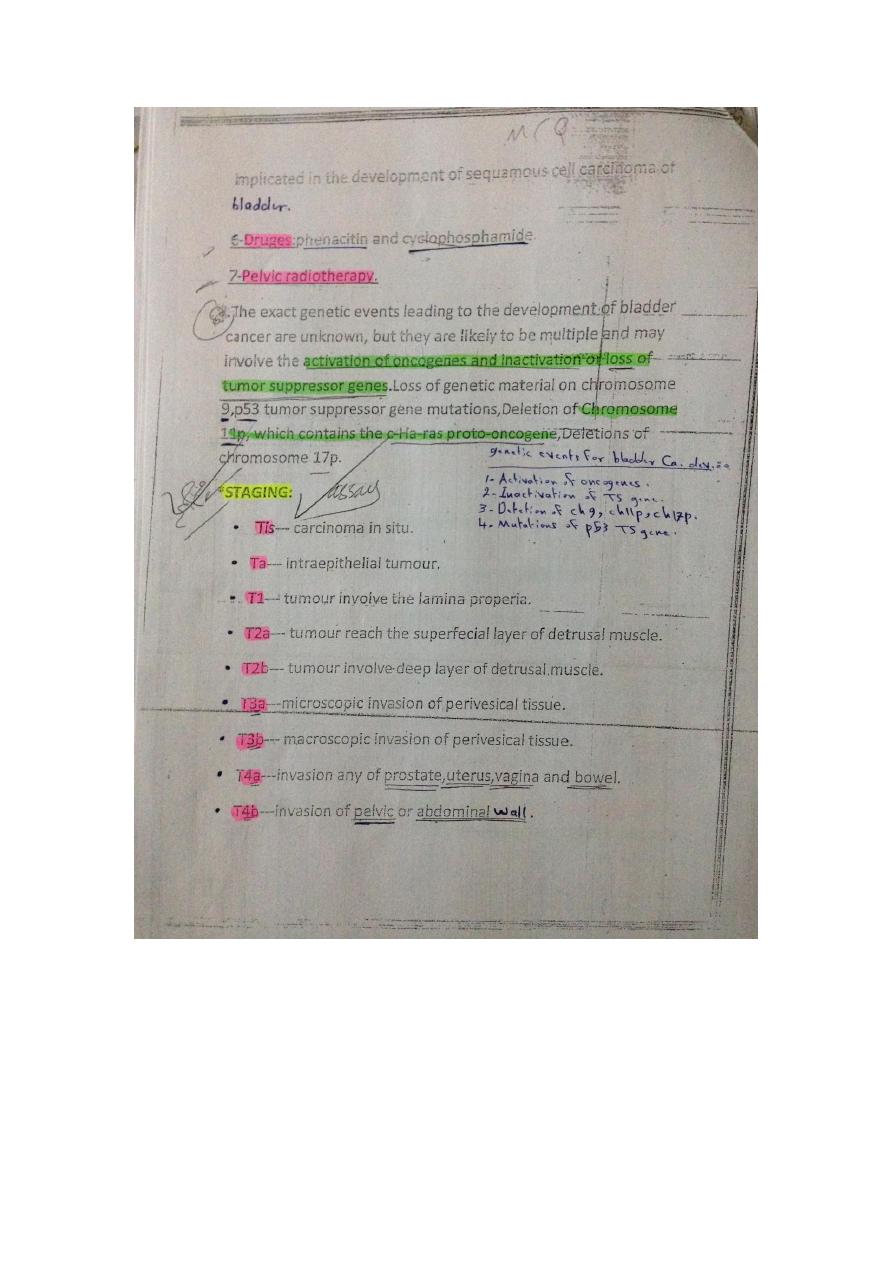 MCQ
implicated in the development of sequamous cell carcinoma of
bladder.
6-Druges:phenacitin and cyclophosphamide.
7-Pelvic radiotherapy.
.The exact genetic events leading to the development of bladder
cancer are unknown, but they are likely to be multiple and may
involve the activation of oncogenes and inactivation or loss of
tumor suppressor genes.Loss of genetic material on chromosome
9,p53 tumor suppressor gene mutations,Deletion of Chromosome
11p, which contains the c-Ha-ras proto-oncogene,Deletions of
chromosome 17p.
genetic events for bladder Ca. dev.
1- Activation of oncogenes.
2- Inactivation of TS gene.
3- Deletion of ch9, ch11p, ch17p.
4- Mutations of p53 TS gene.
*STAGING:
assay
• Tis--- carcinoma in situ.
• Ta--- intraepithelial tumour.
• T1--- tumour involve the lamina properia.
• T2a--- tumour reach the superfecial layer of detrusal muscle.
• T2b--- tumour involve deep layer of detrusal.muscle.
• T3a---microscopic invasion of perivesical tissue.
• T3b--- macroscopic invasion of perivesical tissue.
• T4a---invasion any of prostate,uterus,vagina and bowel.
• T4b---invasion of pelvic or abdominal wall.